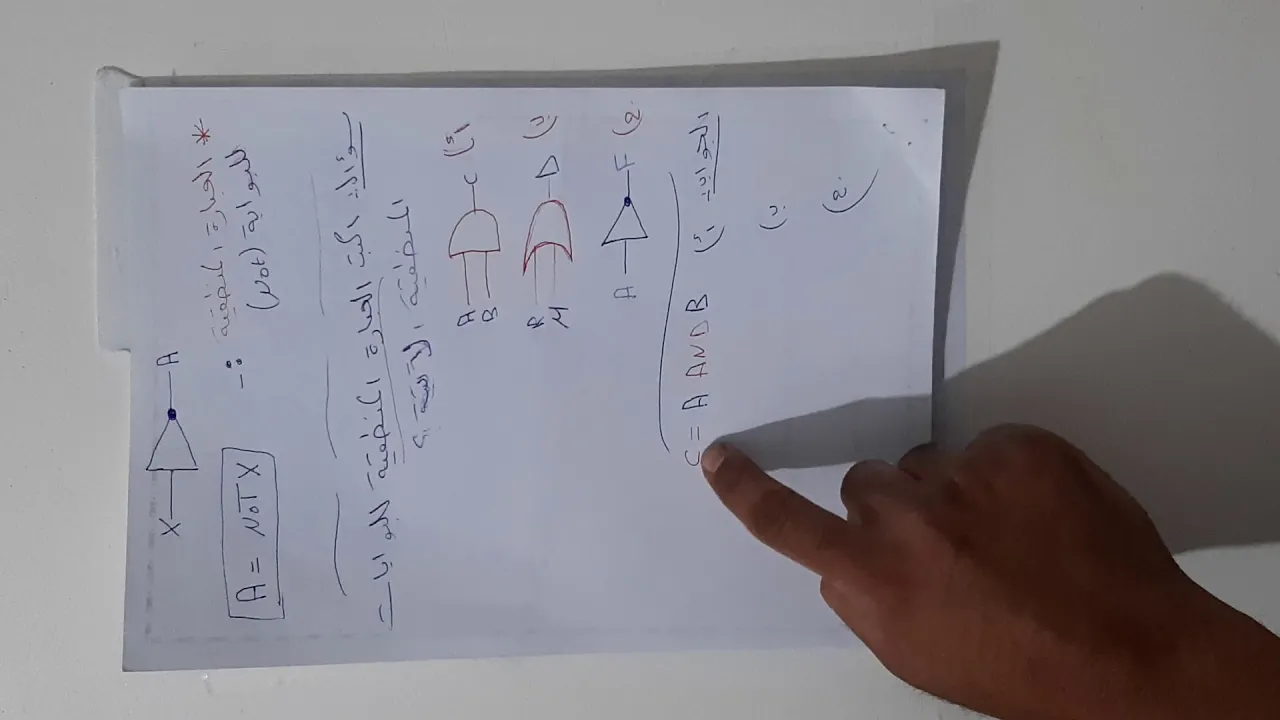 * العبارة المنطقية
للبوابة (NOT) :-
X A
A = NOT X
سؤال: اكتب العبارة المنطقية للبوابات
المنطقية الآتية؟
أ) A B C
ب) R M D
ج) A F
الجواب: أ) C = A AND B
ب)
ج)